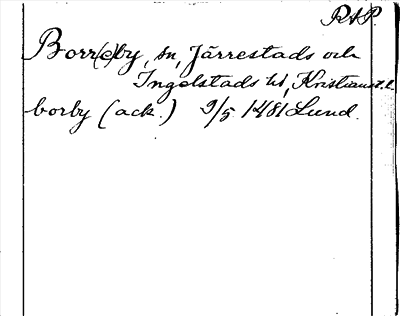 RAP.
Borr(e)by, sn, Järrestads och
Ingelstads hd, Kristianst. l.
borby (ack.) 9/5 1481 Lund.